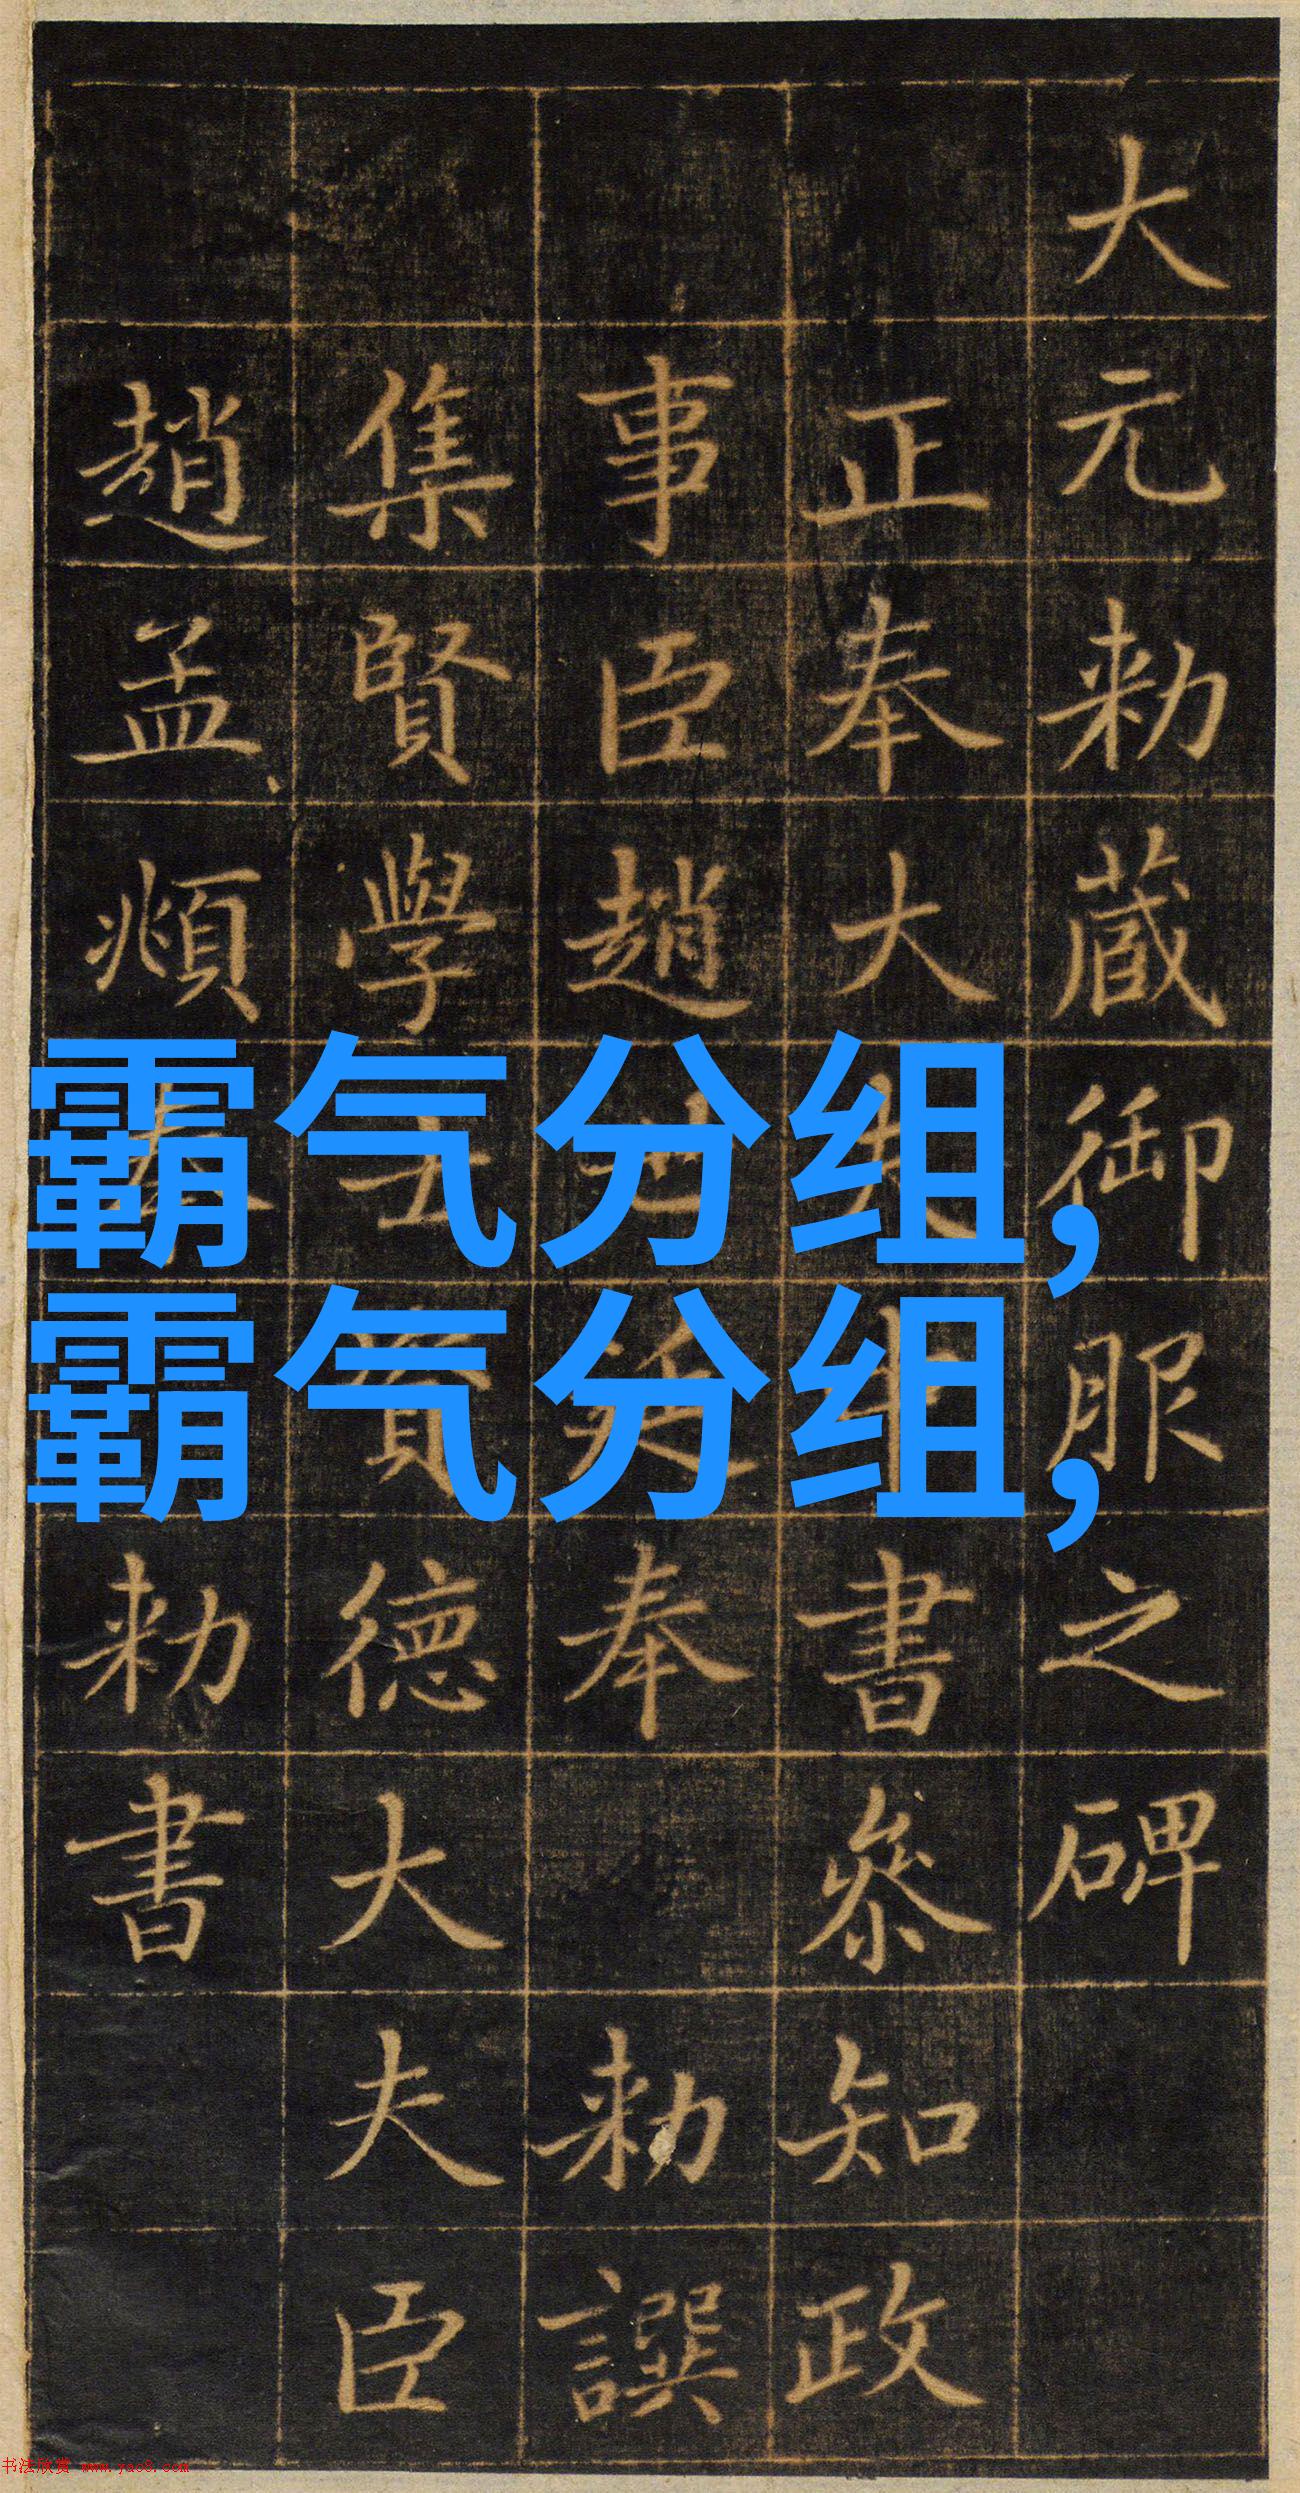 大元勑蔵御服之碑
正奉大夫中書叅知政
事臣趙世延奉勑譔
集賢學士資德大夫臣
趙孟頫奉勑書
霸气分组,
霸气分组,
书法欣赏 www.yac8.com